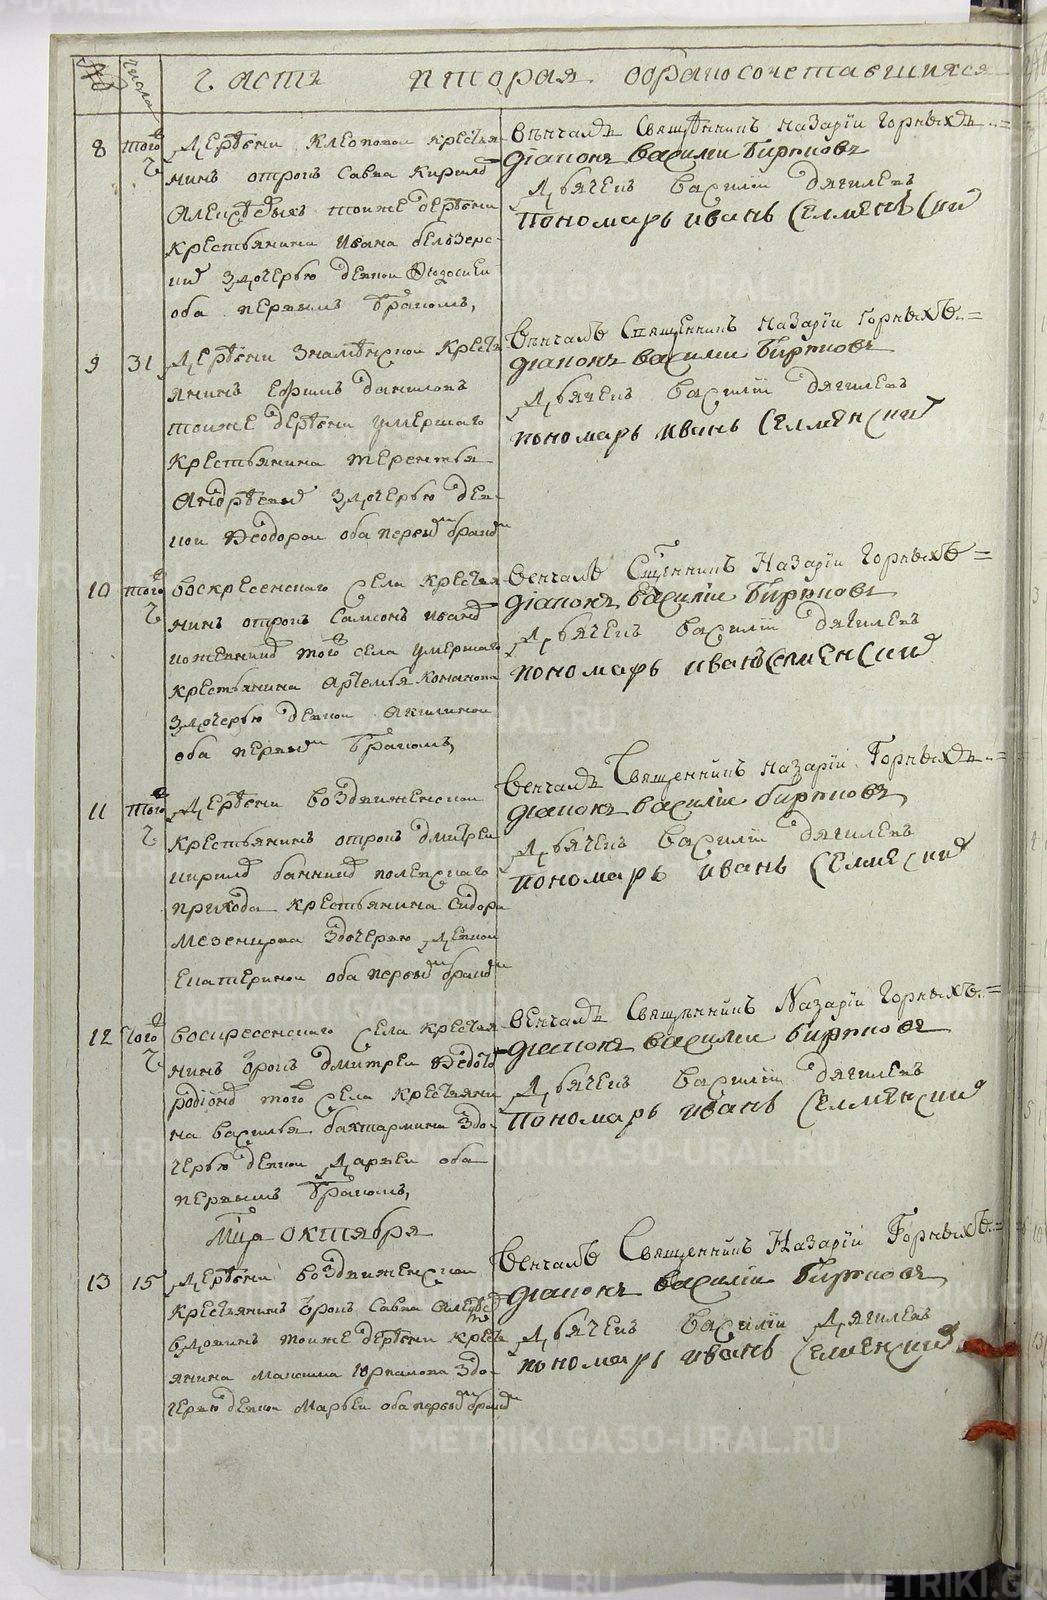 № числа Часть вторая о бракосочетавшихся
8 того ч Деревни Клеоповой крестья
нинъ отрокъ Савва Кирилъ
Алексѣевыхъ тоиже деревни
крестьянина Ивана Бельзерс
здочерью девкои Феодосиеи
оба первымъ бракомъ,
Вѣнчалъ Священникъ Назарїи Горныхъ
діаконъ Василеи Бирюковъ
Дьячекъ Василїи Дягилевъ
Пономарь Иванъ Селменскии
9 31 Деревни Знаменскои кресть
янинъ Ефимъ Даниловъ
тоиже деревни умершаго
крестьянина Терентья
Андрѣева здочерью дев
кои Феодорои оба первы бракъ
Вѣнчалъ Священникъ Назарїи Горныхъ
діаконъ Василеи Бирюковъ
Дьячекъ Василїи Дягилевъ
пономарь Иванъ Селменскии
10 того ч Воскресенскаго села крестья
нинъ отрокъ Самсонъ Иванъ
того села умершаго
крестьянина Артемья Романова
здочерью девкои Акилинои
оба первы бракомъ,
Венчалъ Сщенникъ Назарїи Горныхъ
діаконъ Василїи Бирюковъ
Дьячекъ Василїи Дягилевъ
пономарь Иванъ Селменскии
11 того ч Деревни Воздвиженскои
крестьянинъ отрокъ Дмитреи
Кирилъ Полевскаго
прихода крестьянина Сидора
Мезенцова здочерью девкои
Екатеринои оба первы бракъ
Венчалъ Священникъ Назарїи Горныхъ
діаконъ Василїи Бирюковъ
Дьячекъ Василїи Дягилевъ
пономарь Иванъ Селменскии
12 того ч Воскресенскаго села крестья
нинъ отрокъ Дмитреи Федотъ
Родіонъ того села крестьяни
на Василья Бахтармина здо
черью девкои Дарьеи оба
первымъ бракомъ,
Венчалъ Священникъ Назарїи Горныхъ
діаконъ Василеи Бирюковъ
Дьячекъ Василїи Дягилевъ
Пономарь Иванъ Селменскии
Мца Октября
13 15 Деревни Воздвиженскои
крестьянинъ отрокъ Савва
тоиже деревни кресть
янина Максима здо
черью девкои Марьеи оба первы бракъ
Венчалъ Священникъ Назарїи Горныхъ
діаконъ Василїи Бирюковъ
Дьячекъ Василїи Дягилевъ
пономарь Иванъ Селменскии
METRIKI.GASO-URAL.RU